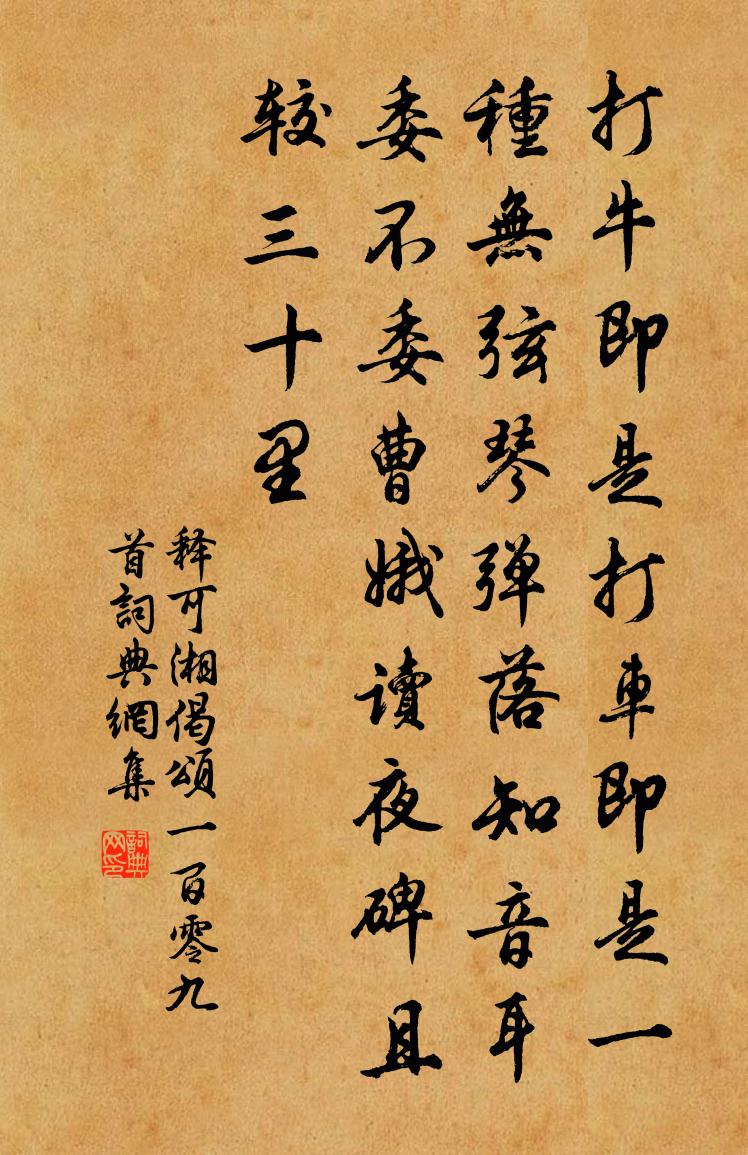 打牛即是打車即是一
種無弦琴弹落知音耳
委不委曹娥讀夜碑且
较三十里
释可湘偈頌一百零九
首詞典網集
詞典
网印